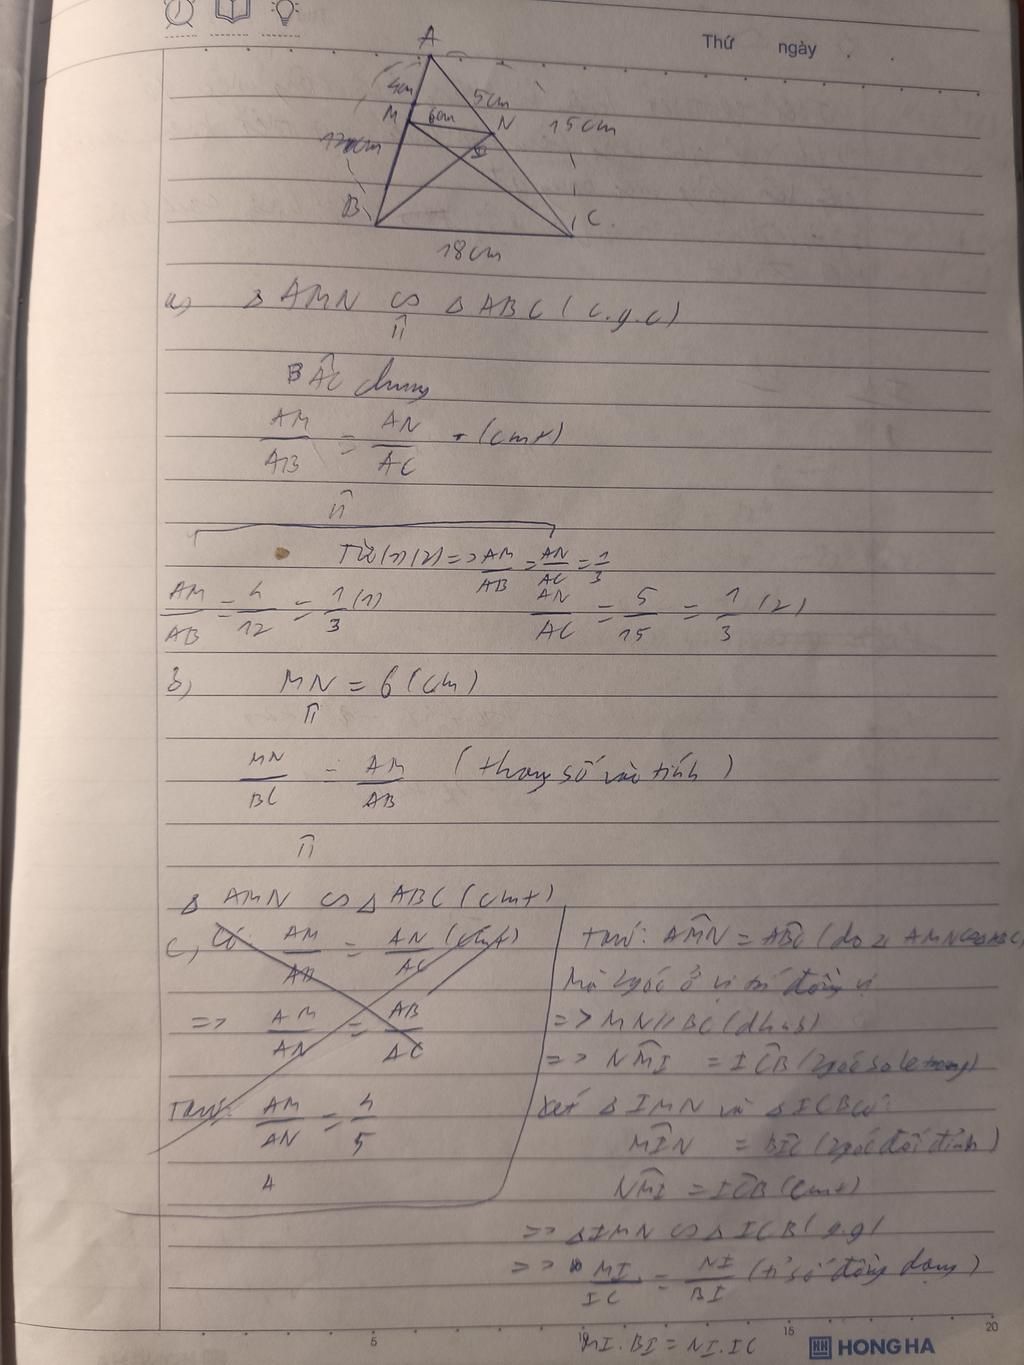 Thứ ngày
A
4cm
5cm
M
6cm
N
15cm
I
B
C
18cm
a) Δ AMN ∽ Δ ABC (c.g.c)
⇑
BÂC chung
AM/AB = AN/AC (cmt)
⇑
Từ (1)(2) => AM/AB = AN/AC = 1/3
AM/AB = 4/12 = 1/3 (1) AN/AC = 5/15 = 1/3 (2)
b) MN = 6 (cm)
⇑
MN/BC = AM/AB (thay số vào tính)
⇑
Δ AMN ∽ Δ ABC (cmt)
c, Có AM/AB = AN/AC (cmt)
=> AM/AN = AB/AC
AM/AN = 4/5
4
AM̂N = AB̂C (do Δ AMN ∽ ΔABC)
Mà 2 góc ở vị trí đồng vị
=> MN // BC (dhnb)
=> NM̂I = IĈB (2 góc so le trong)
Xét Δ IMN và Δ ICB có:
MÎN = BÎC (2 góc đối đỉnh)
NM̂I = IĈB (cmt)
=> ΔIMN ∽ Δ ICB (g.g)
=> MI/IC = NI/BI (tỉ số đồng dạng)
MI.BI = NI.IC
5 10 15 20
HONG HA